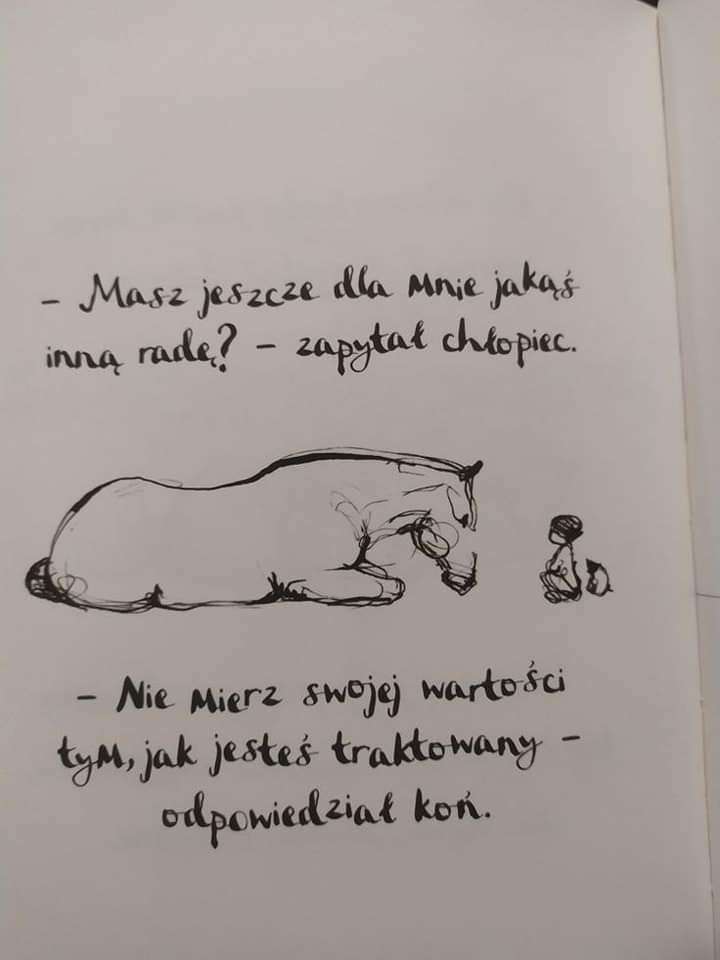 - Masz jeszcze dla mnie jakąś
inną radę? - zapytał chłopiec.
- Nie mierz swojej wartości
tym, jak jesteś traktowany -
odpowiedział koń.